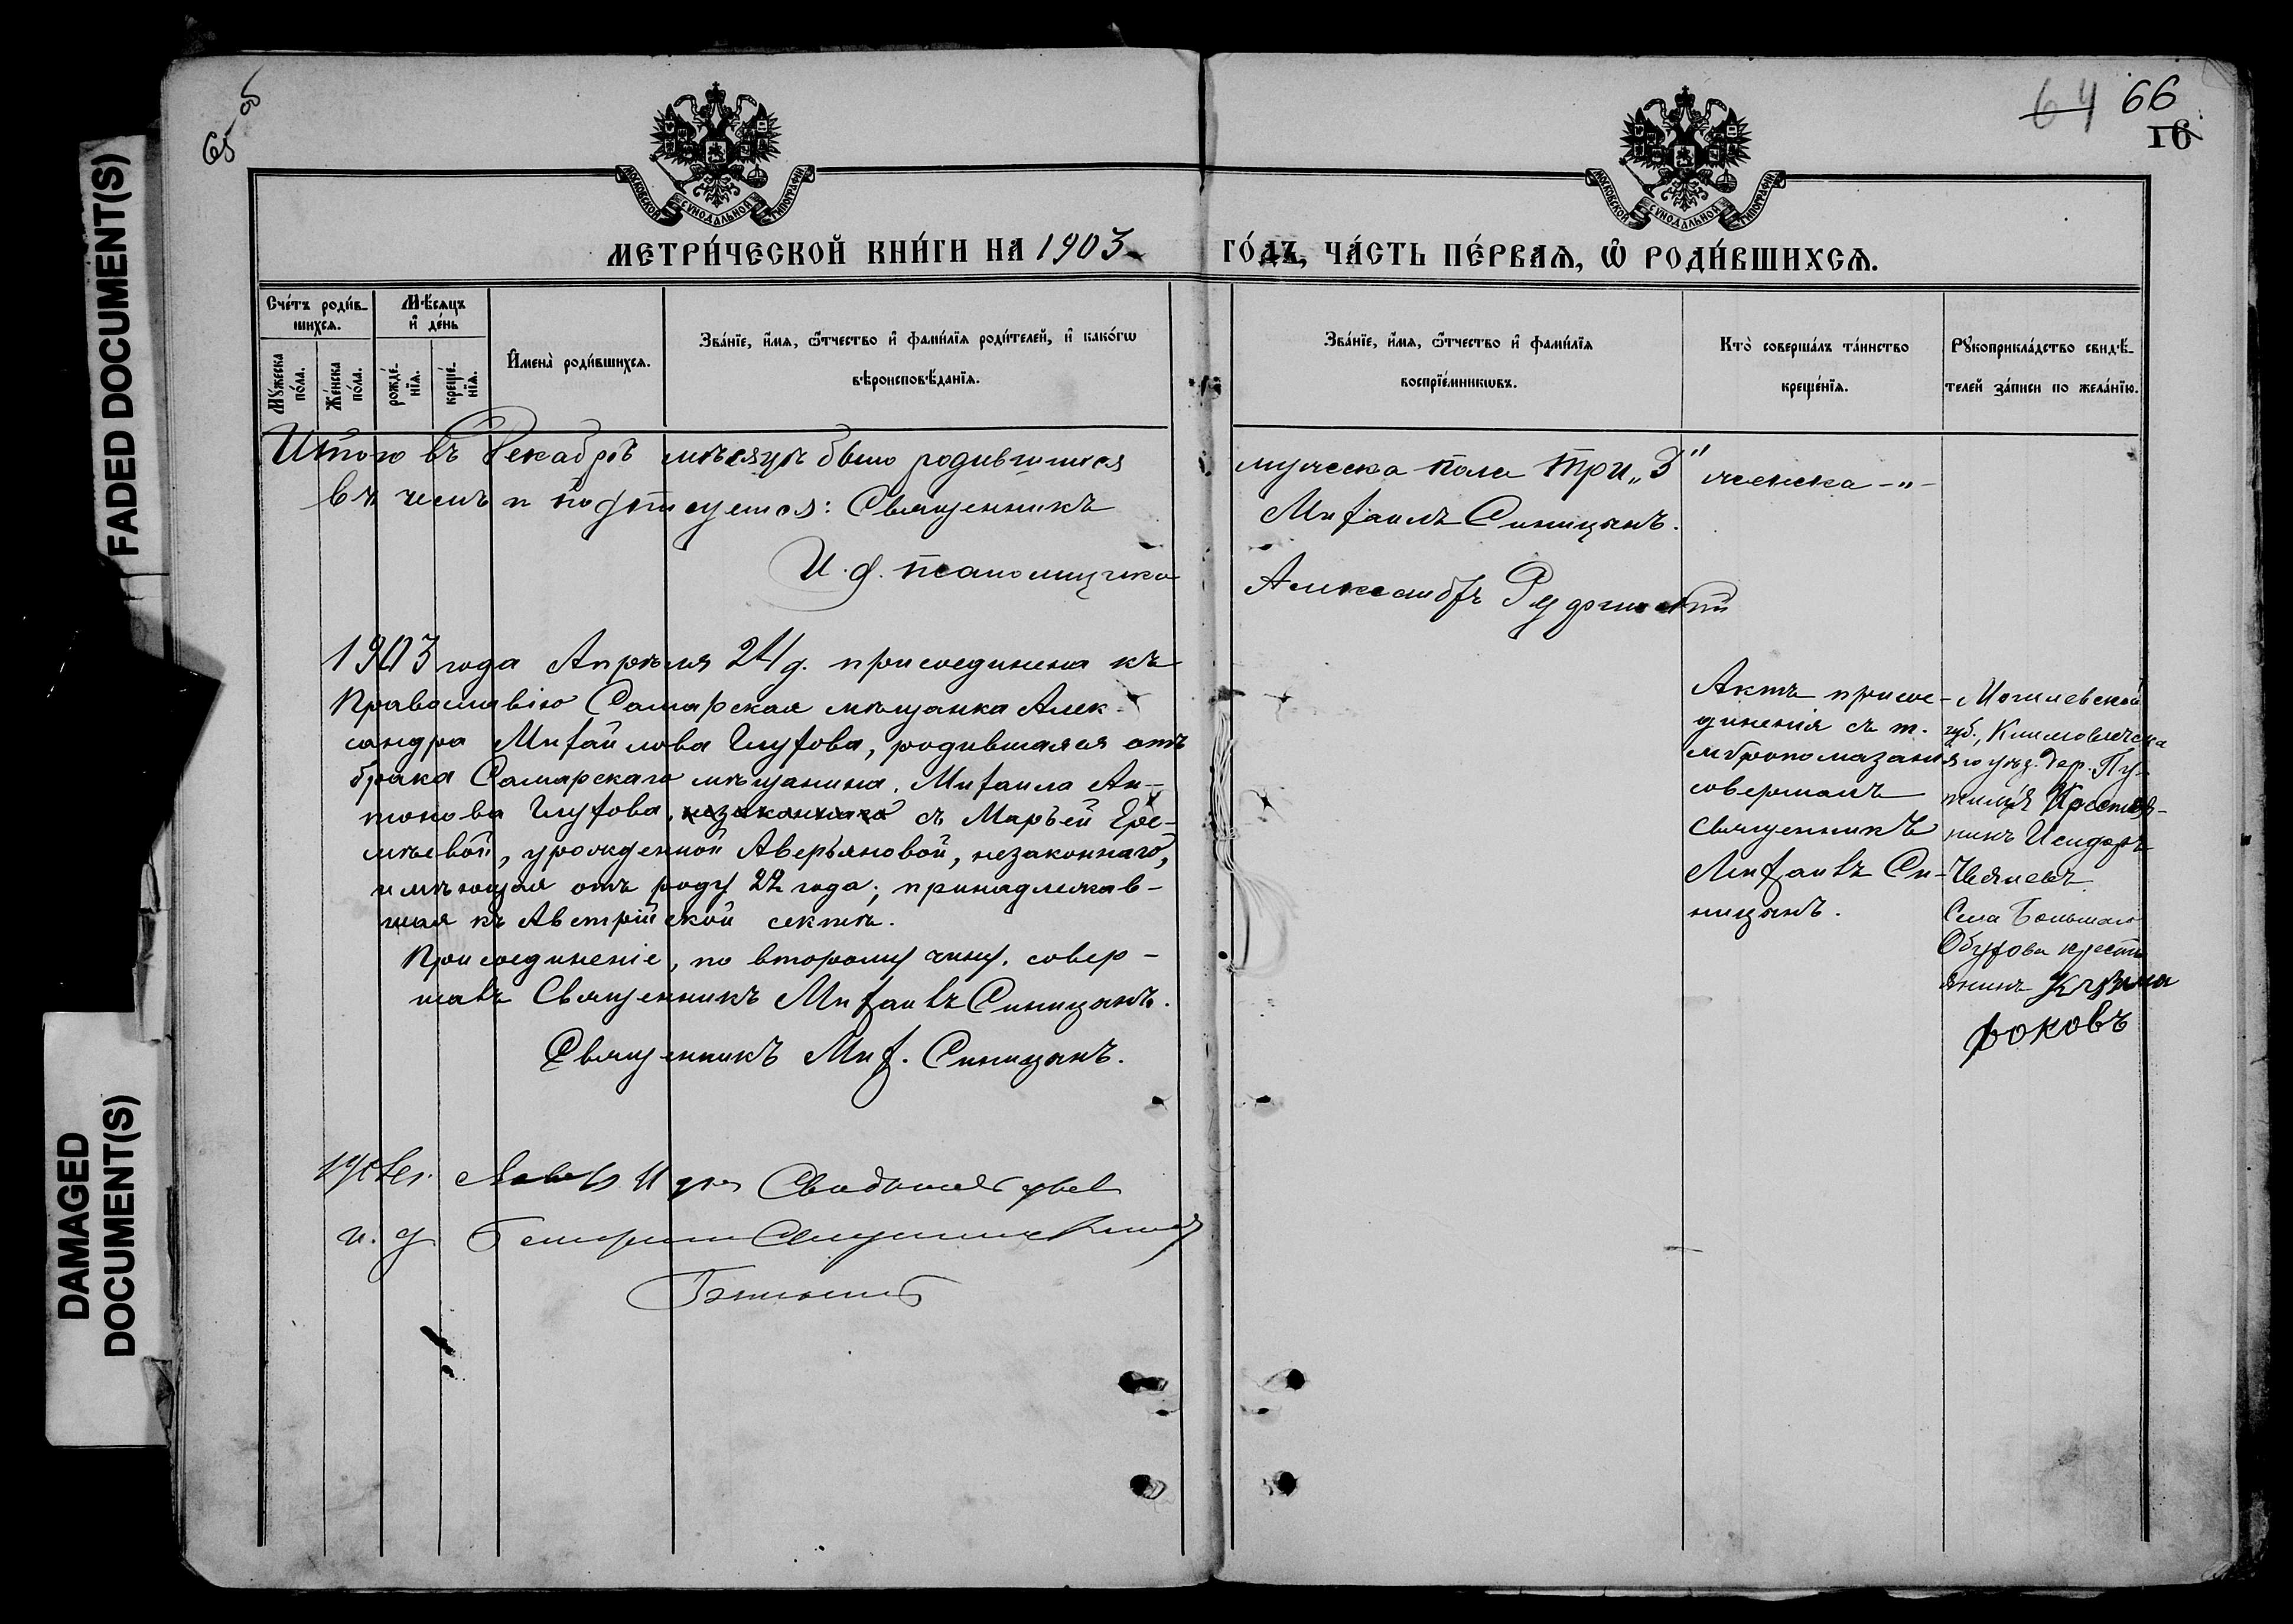 FADED DOCUMENT(S)
DAMAGED
DOCUMENT(S)
65 об
64 66
16
МОСКОВСКОЙ СѴНОДАЛЬНОЙ ТИПОГРАФІИ
МОСКОВСКОЙ СѴНОДАЛЬНОЙ ТИПОГРАФІИ
МЕТРИ́ЧЕСКОЙ КНИ́ГИ НА 1903 ГО́ДЪ, ЧА́СТЬ ПЕ́РВАѦ, Ѡ РОДИ́ВШИХСѦ.
Сче́тъ роди́в-
шихсѧ.
Мѣ́сѧцъ
и҆ де́нь
Мꙋ́жеска
по́ла.
Же́нска
по́ла.
рожде́-
нїѧ.
креще́-
нїѧ.
И҆мена̀ роди́вшихсѧ.
Зва́нїе, и҆́мѧ, ѻ҆́тчество и҆ фами́лїѧ роди́телей, и҆ како́гѡ
вѣроисповѣ́данїѧ.
Зва́нїе, и҆́мѧ, ѻ҆́тчество и҆ фами́лїѧ
воспрїе́мникѡвъ.
Кто̀ соверша́лъ та́инство
креще́нїѧ.
Рꙋкоприкла́дство свидѣ́-
телей за́писи по жела́нїю.
Итого въ Декабрѣ мѣсяцѣ было родившихся мужеска пола три „3" женска -"-
въ чемъ и подписуемся: Священникъ Михаилъ Синицынъ.
И. д. псаломщика Александръ
1903 года Апрѣля 24 д. присоединена къ
Православію Самарская мѣщанка Алек-
сандра Михайлова Глухова, родившаяся отъ
брака Самарскаго мѣщанина, Михаила Ан-
тонова Глухова, незаконнаго съ Марьей Ере-
мѣевой, урожденной Аверьяновой, незаконнаго,
имѣющая отъ роду 22 года; принадлежав-
шая къ Австрійской сектѣ.
Присоединеніе, по второму чину, совер-
шалъ Священникъ Михаилъ Синицынъ.
Священникъ Мих. Синицынъ.
Актъ присое-
диненія съ т.
мѵропомазанія
совершалъ
священникъ
Михаилъ Си-
ницынъ.
Могилевской
губ., Климовичска
го уѣз. дер.
Крестья-
нинъ Исидоръ
Села Большаго
Обухова кресть
янинъ Кузма
Фоковъ
и. д.